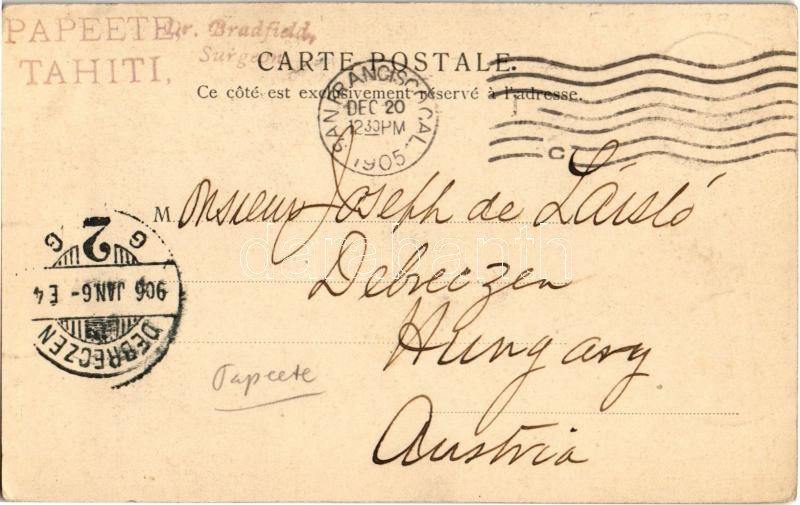 PAPEETE,
TAHITI,
Dr. Bradfield,
Surgeon
CARTE POSTALE.
Ce côté est exclusivement réservé à l'adresse.
SAN FRANCISCO, CAL.
DEC 20
12 30 PM
1905
Monsieur Joseph de László
Debreczen
Hungary
Austria
2
G G
906 JAN 6 - É 4
DEBRECZEN
Papeete
darabanth